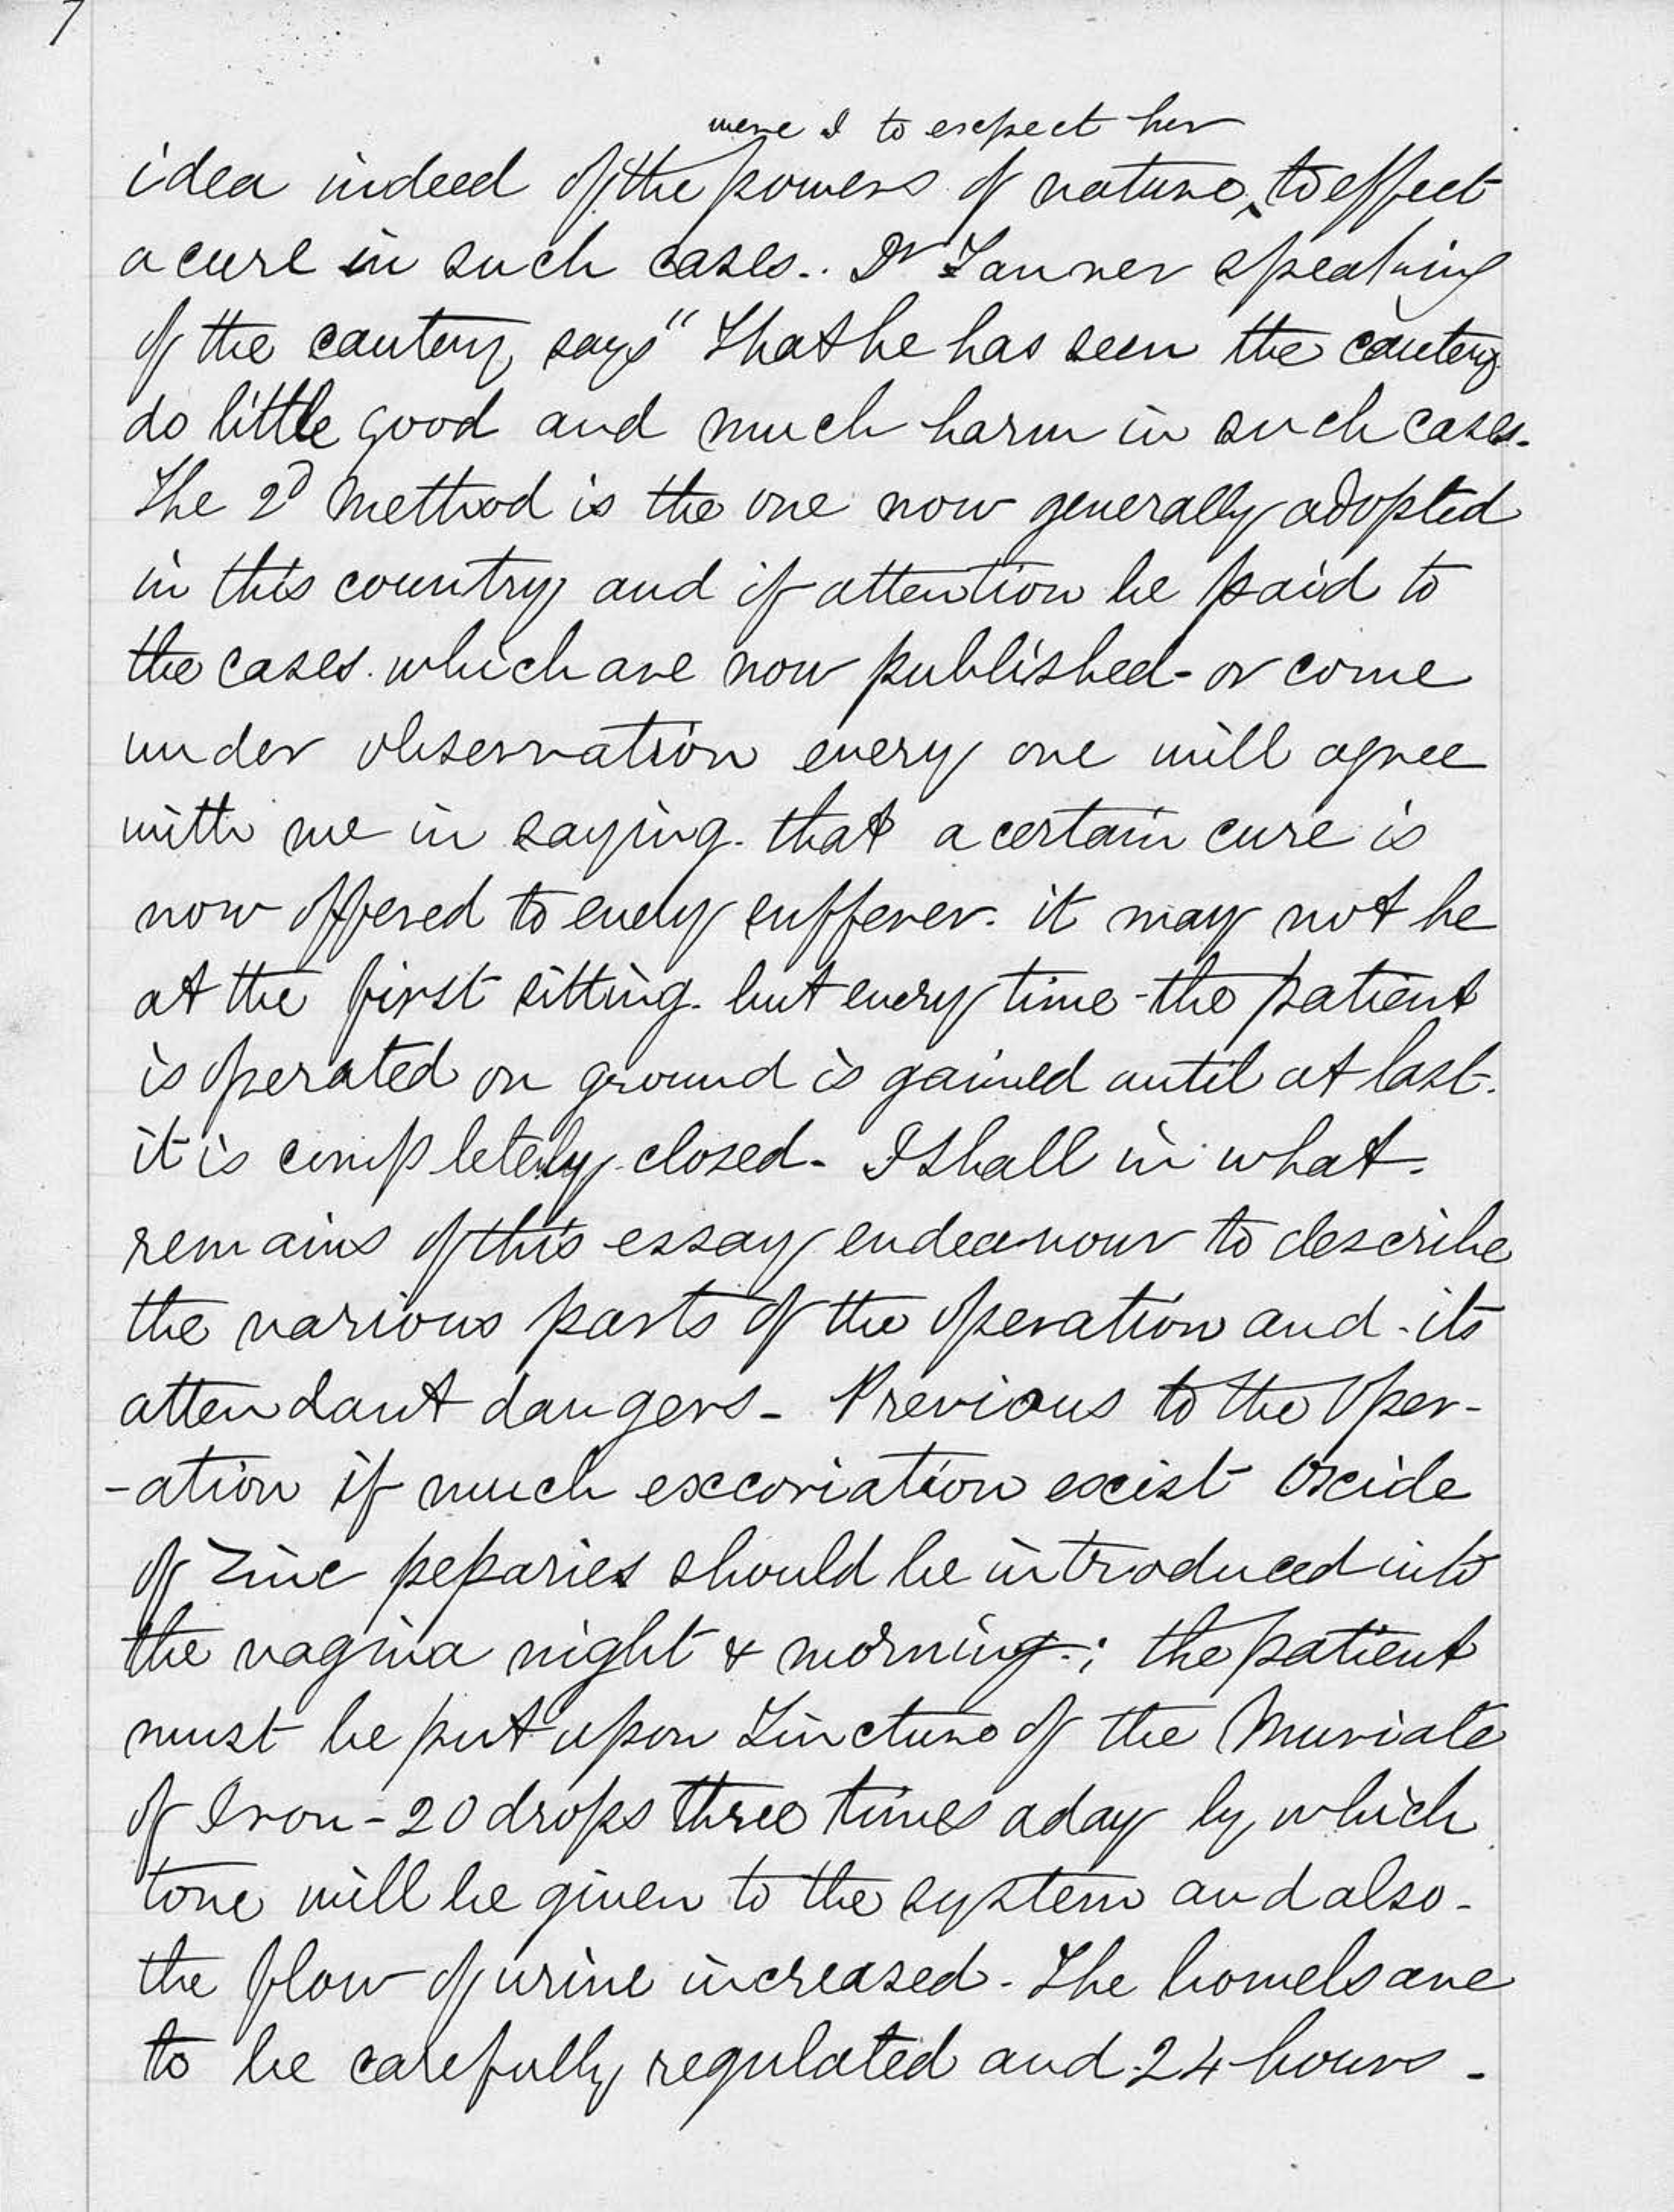 7
were I to expect her
idea indeed of the powers of nature ‸ to effect
a cure in such cases.. Dr Tanner speaking
of the cautery says "That he has seen the cautery
do little good and much harm in such cases.
The 2d method is the one now generally adopted
in this country and if attention be paid to
the cases which are now published - or come
under observation every one will agree
with me in saying that a certain cure is
now offered to every sufferer. it may not be
at the first sitting. but every time - the patient
is operated on ground is gained until at last.
it is completely closed - I shall in what
remains of this essay endeavour to describe
the various parts of the operation and its
attendant dangers - Previous to the Oper-
-ation if much excoriation exist Oxide
of Zinc pepsaries should be introduced into
the vagina night & morning; the patient
must be put upon Tincture of the Muriate
of Iron - 20 drops three times a day by which
tone will be given to the system and also -
the flow of urine increased - The bowels are
to be carefully regulated and 24 hours -